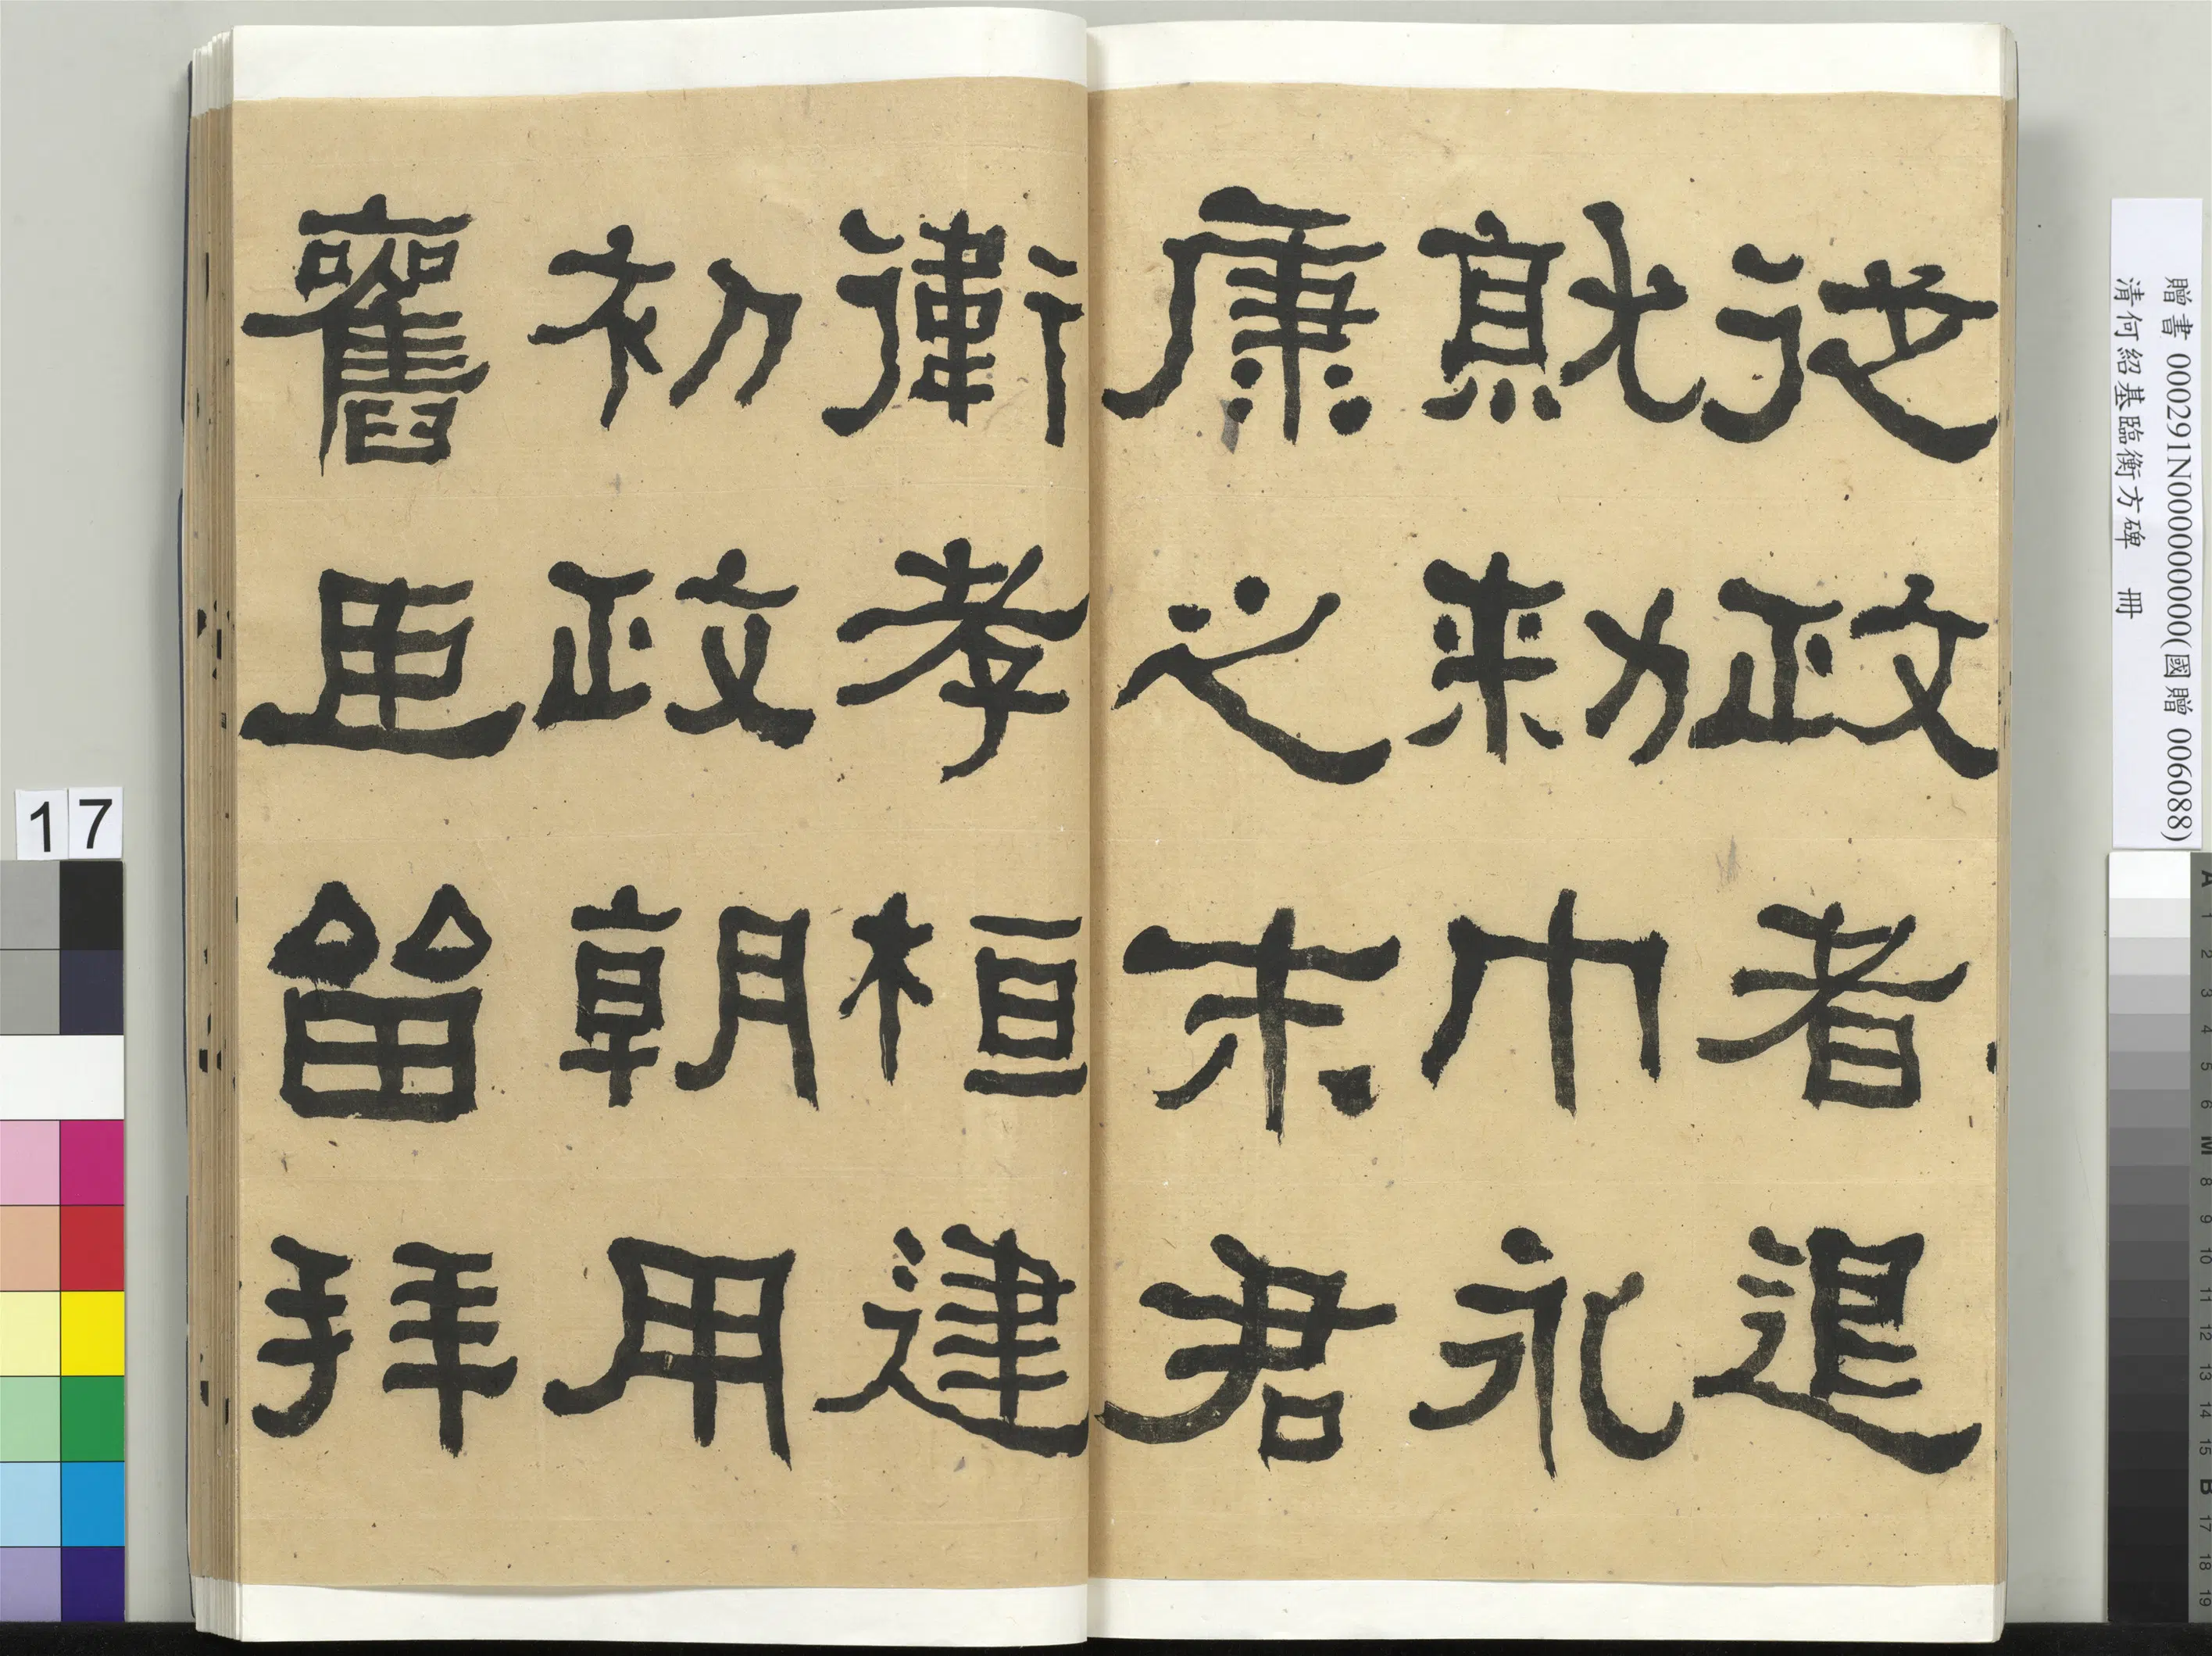 從政者退
就勑巾永
康之末君
衛孝桓建
初政朝用
舊臣留拜
贈書 000291N000000000(國贈 006088)
清何紹基臨衡方碑 冊
17
A 1 2 3 4 5 6 M 8 9 10 11 12 13 14 15 B 17 18 19